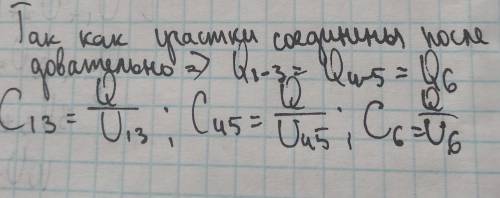 Так как участки соединены после
довательно => Q₁₋₃ = Q₄₋₅ = Q₆
C₁₃ = Q/U₁₃ ; C₄₅ = Q/U₄₅ ; C₆ = Q/U₆